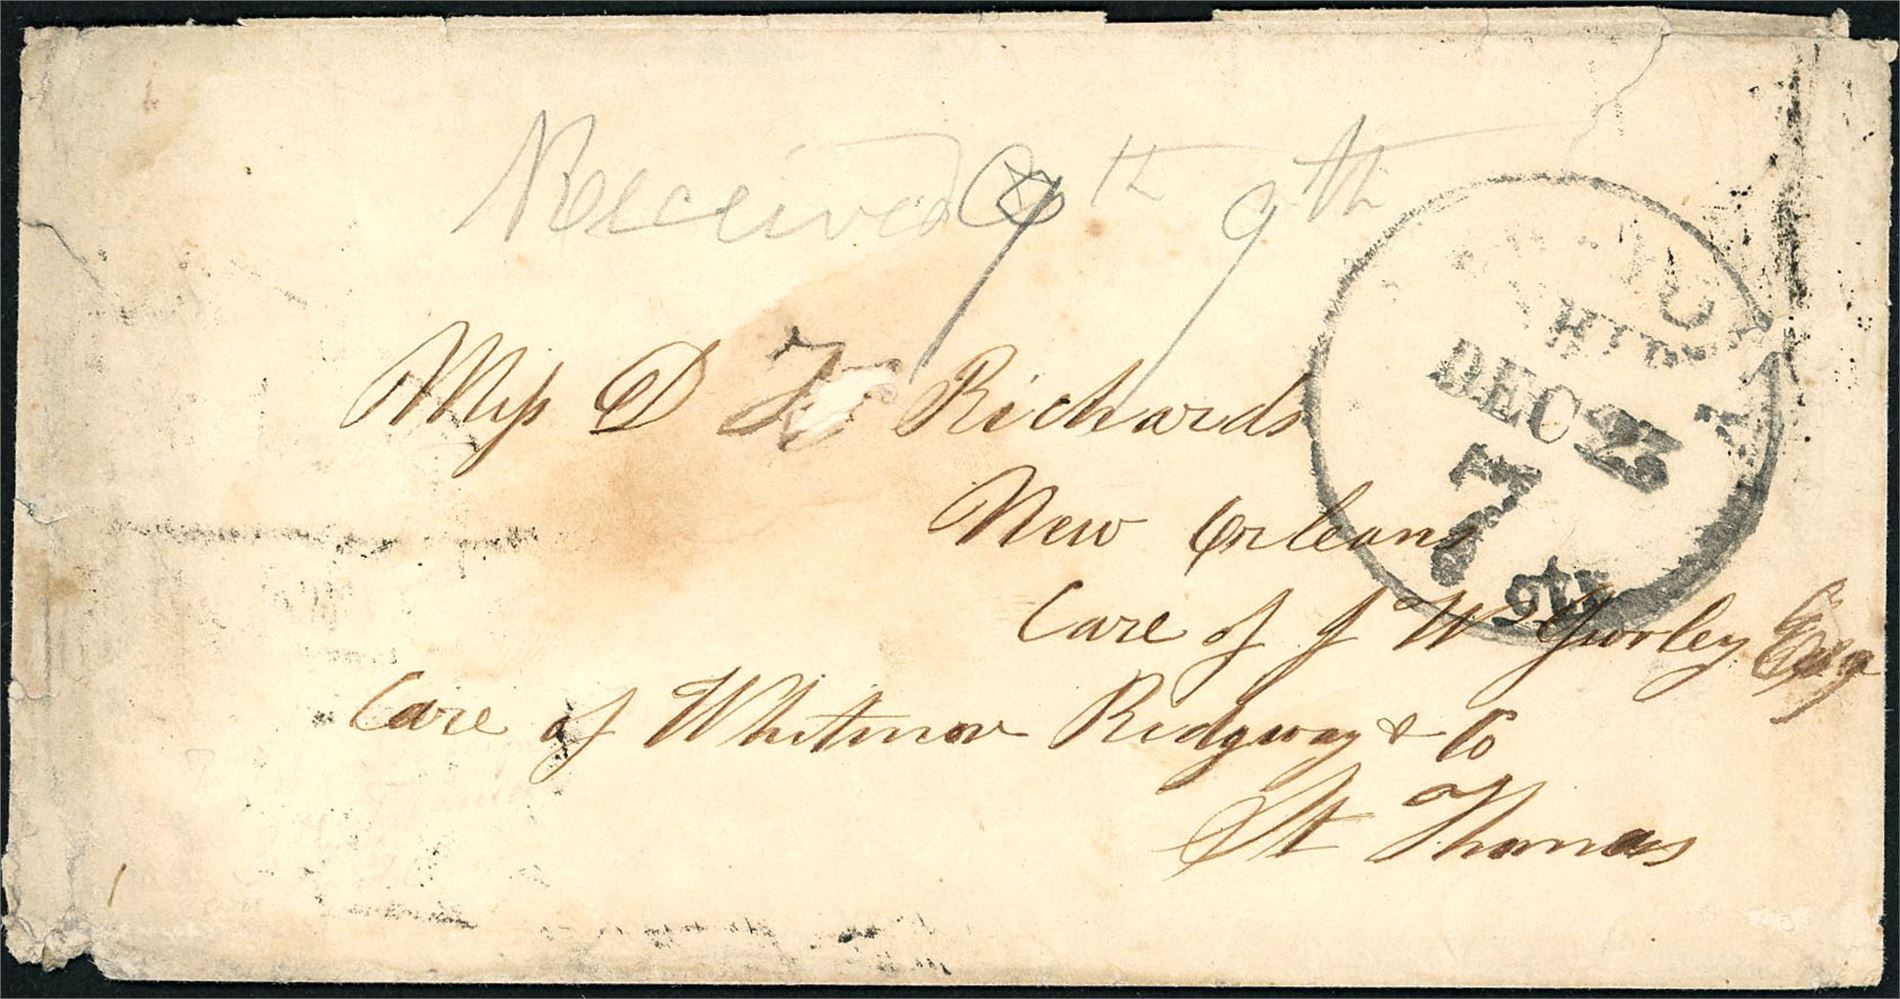 Received 9th 9th
SHIP
DEC 23
7 cts
Miss D Richards
New Orleans
Care of J W Gurley Esq
Care of Whitmore Ridgway & Co
St Thomas